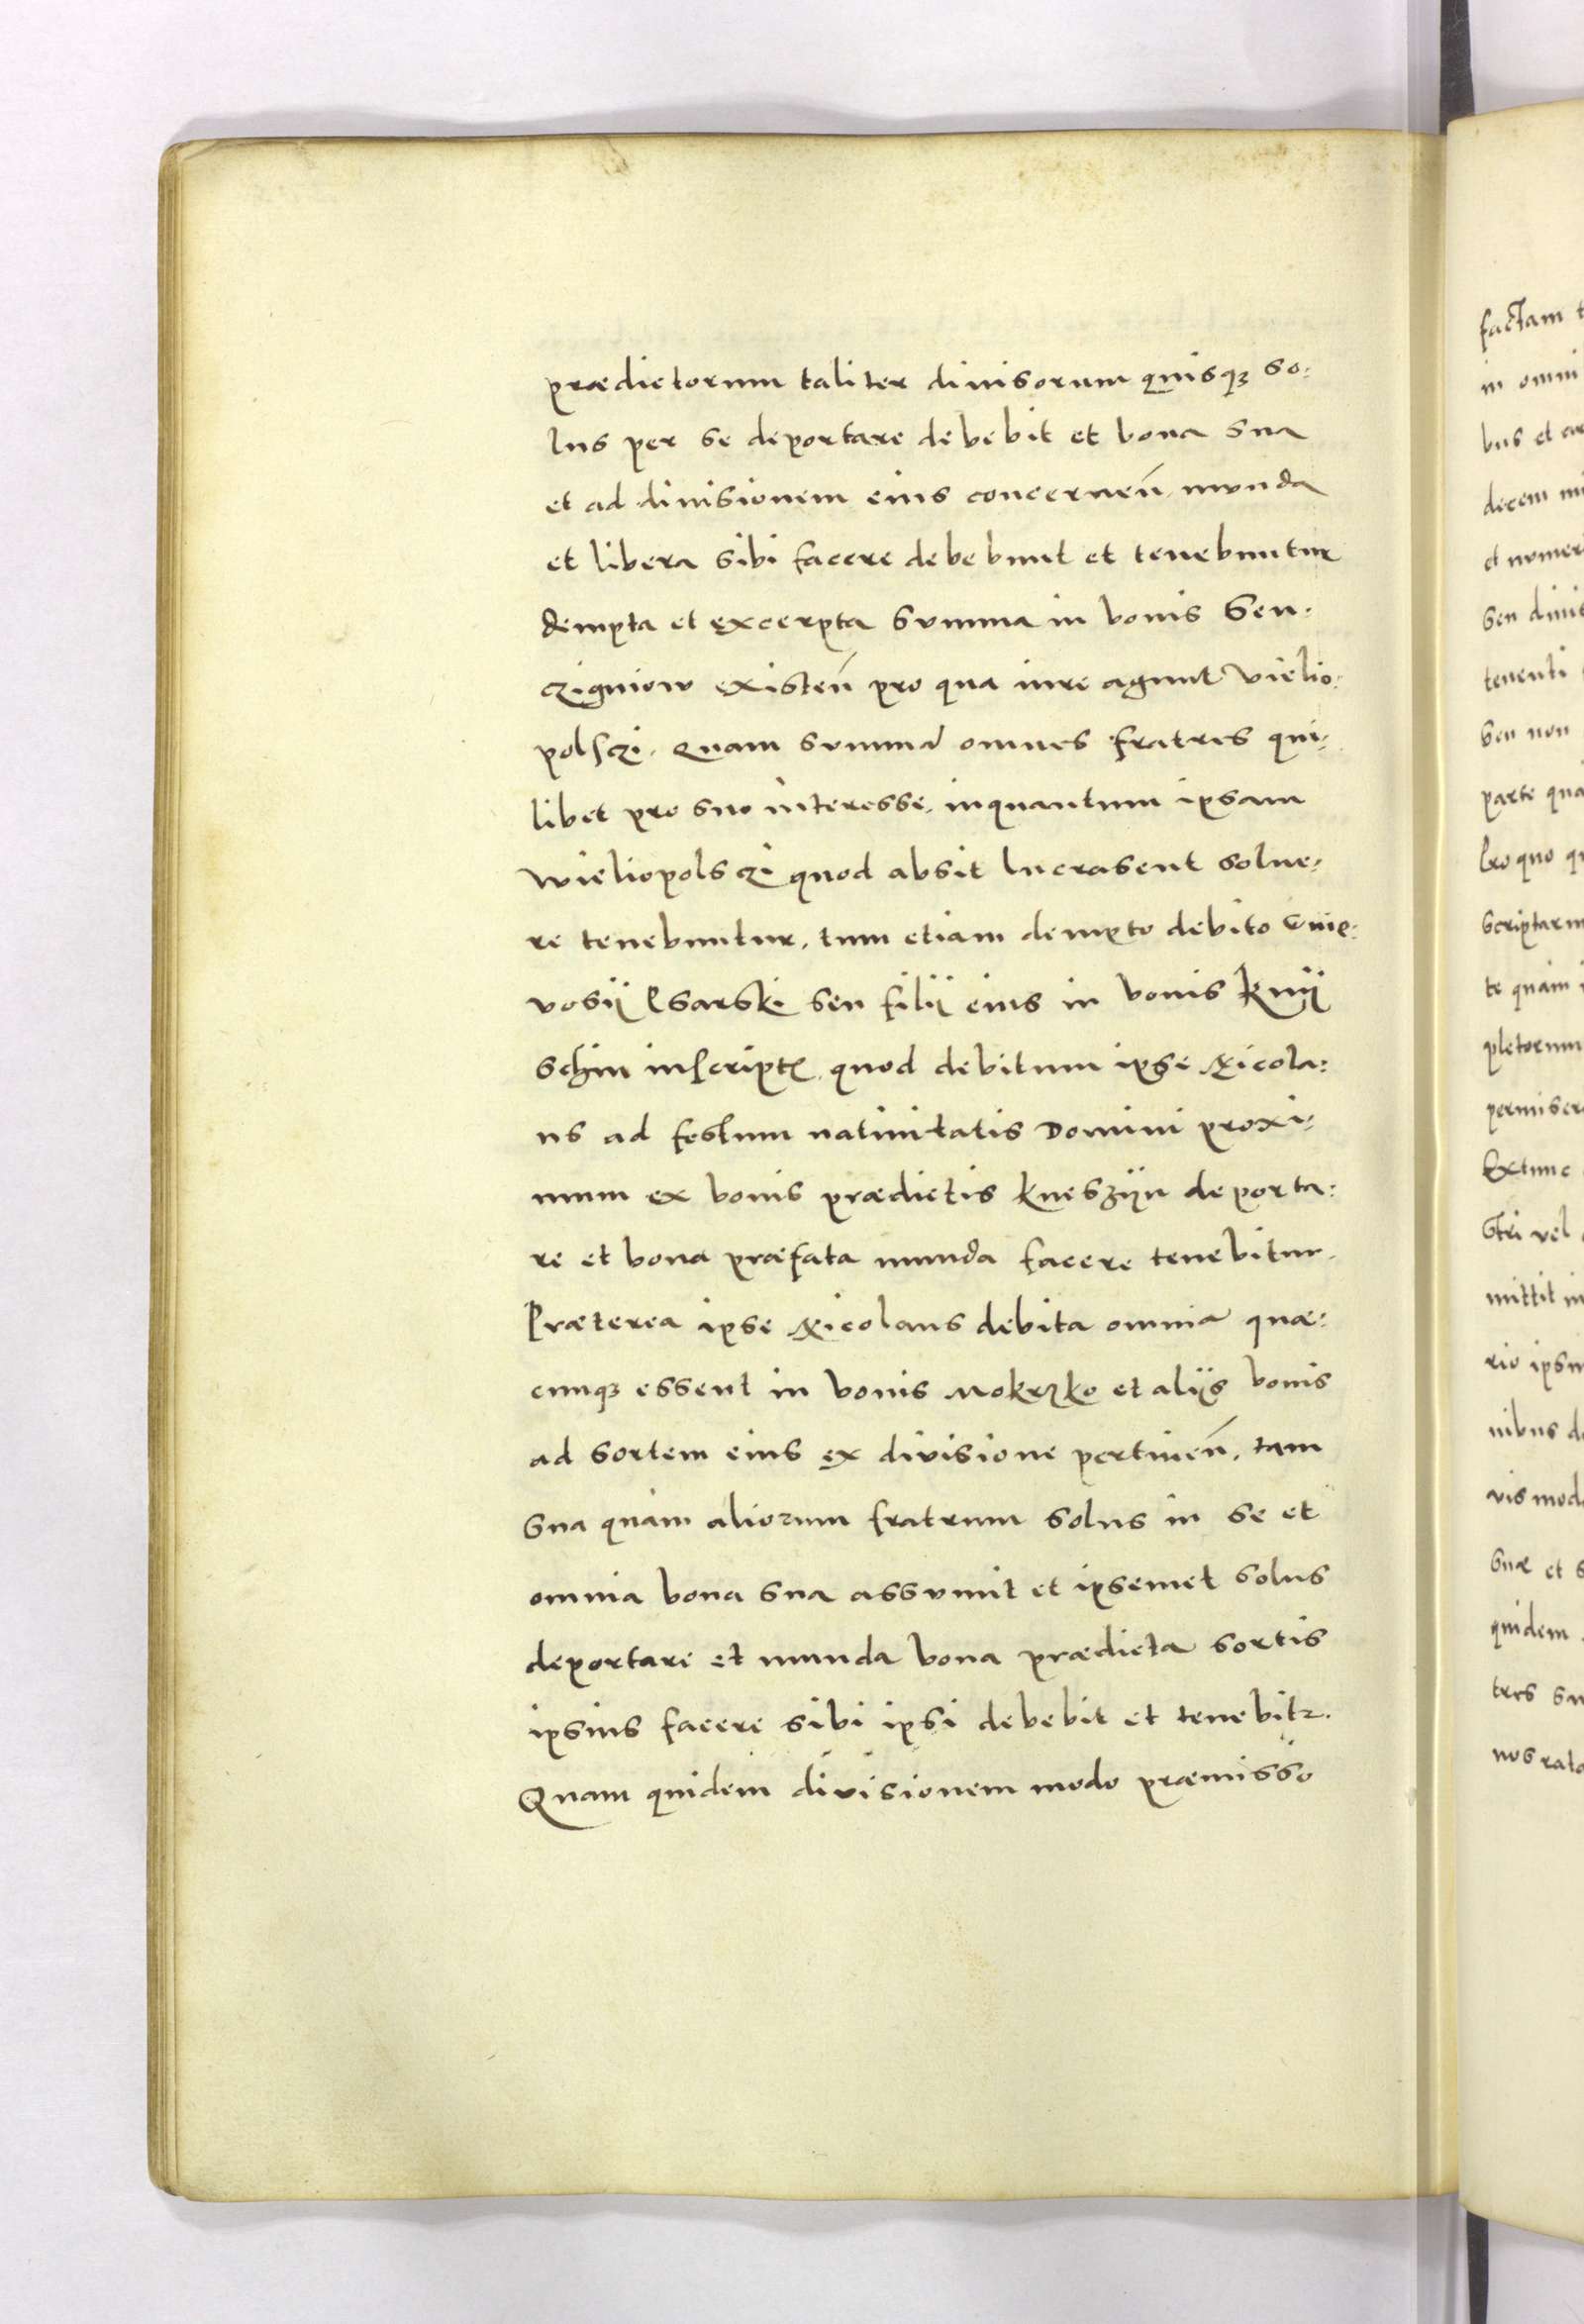 prædictorum taliter diuisorum quisqʒ so:
lus per se deportare debebit et bona sua
et ad diuisionem eius concerneñ munda
et libera sibi facere debebunt et tenebuntur
dempta et excerpta summa in bonis Sen:
czigniow existeñ pro qua iure agunt Vielio:
polsczi. Quam summā omnes fratres qui:
libet pro suo interesse, inquantum ipsam
Wieliopolsczi quod absit lucrasent solue:
re tenebuntur, tum etiam dempto debito Gnie:
vosij Psarski seu filij eius in bonis Knij
schin inscript, quod debitum ipse Nicola:
us ad festum natiuitatis Domini proxi:
mum ex bonis prædictis Kneszijn deporta:
re et bona præfata munda facere tenebitur.
Præterea ipse Nicolaus debita omnia quæ:
cunqʒ essent in bonis Mokrzko et alijs bonis
ad sortem eius ex divisione pertineñ, tam
sua quàm aliorum fratrum solus in se et
omnia bona sua assumit et ipsemet solus
deportare et munda bona prædicta sortis
ipsius facere sibi ipsi debebit et tenebitr.
Quam quidem divisionem modo præmisso
factam
in omni
bus et ar
decem mi
et numer
seu diuis
tenenti
seu non
parte qua
Pro quo q
scriptarum
te quam i
pletorum
permiser
Extunc
stri vel
mittit in
rio ipsiu
nibus d
vis mod
suæ et s
quidem
tres su
nos rato